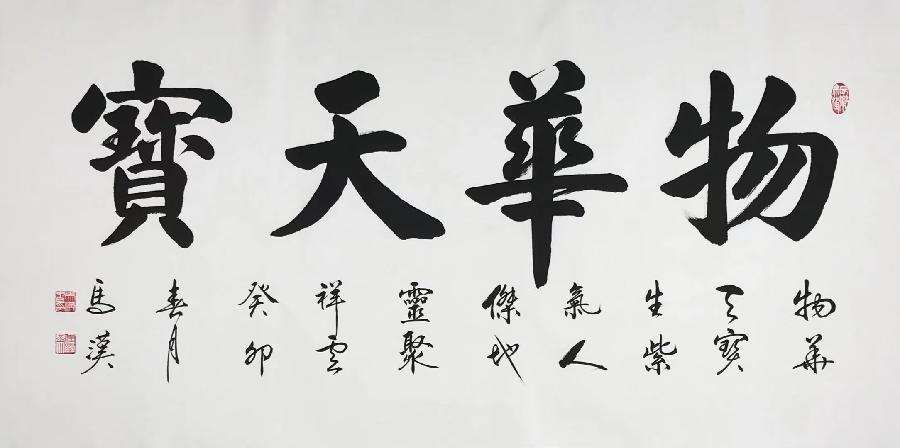 物華天寶
物華
天寶
生紫
氣人
傑地
靈聚
祥雲
癸卯
春月
馬漢